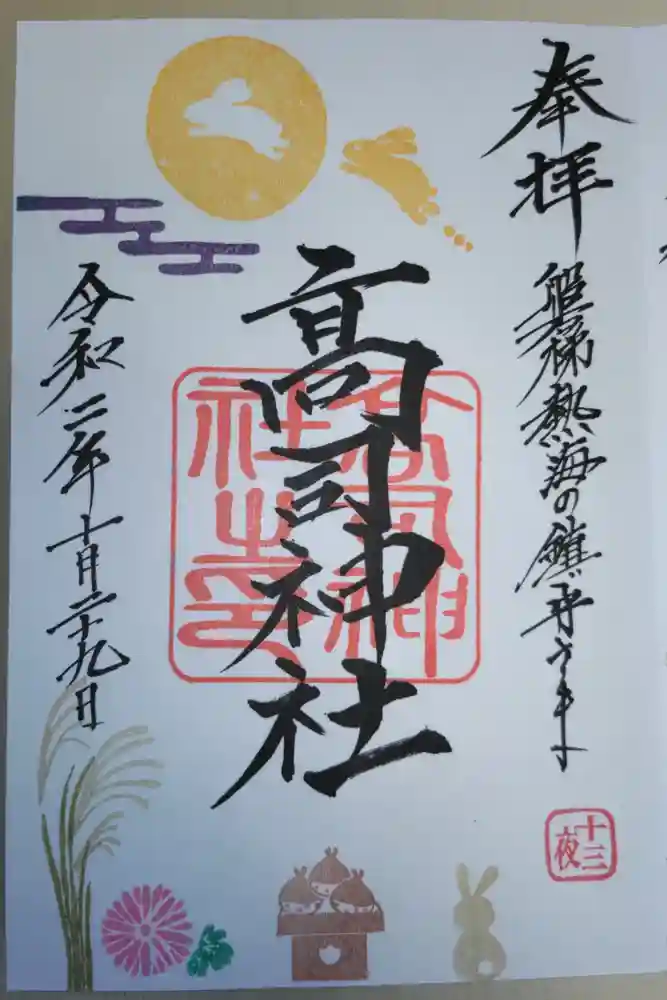 奉拝
磐梯熱海の鎮守さま
高司神社
高司神社之印
令和二年十月二十九日
十三夜